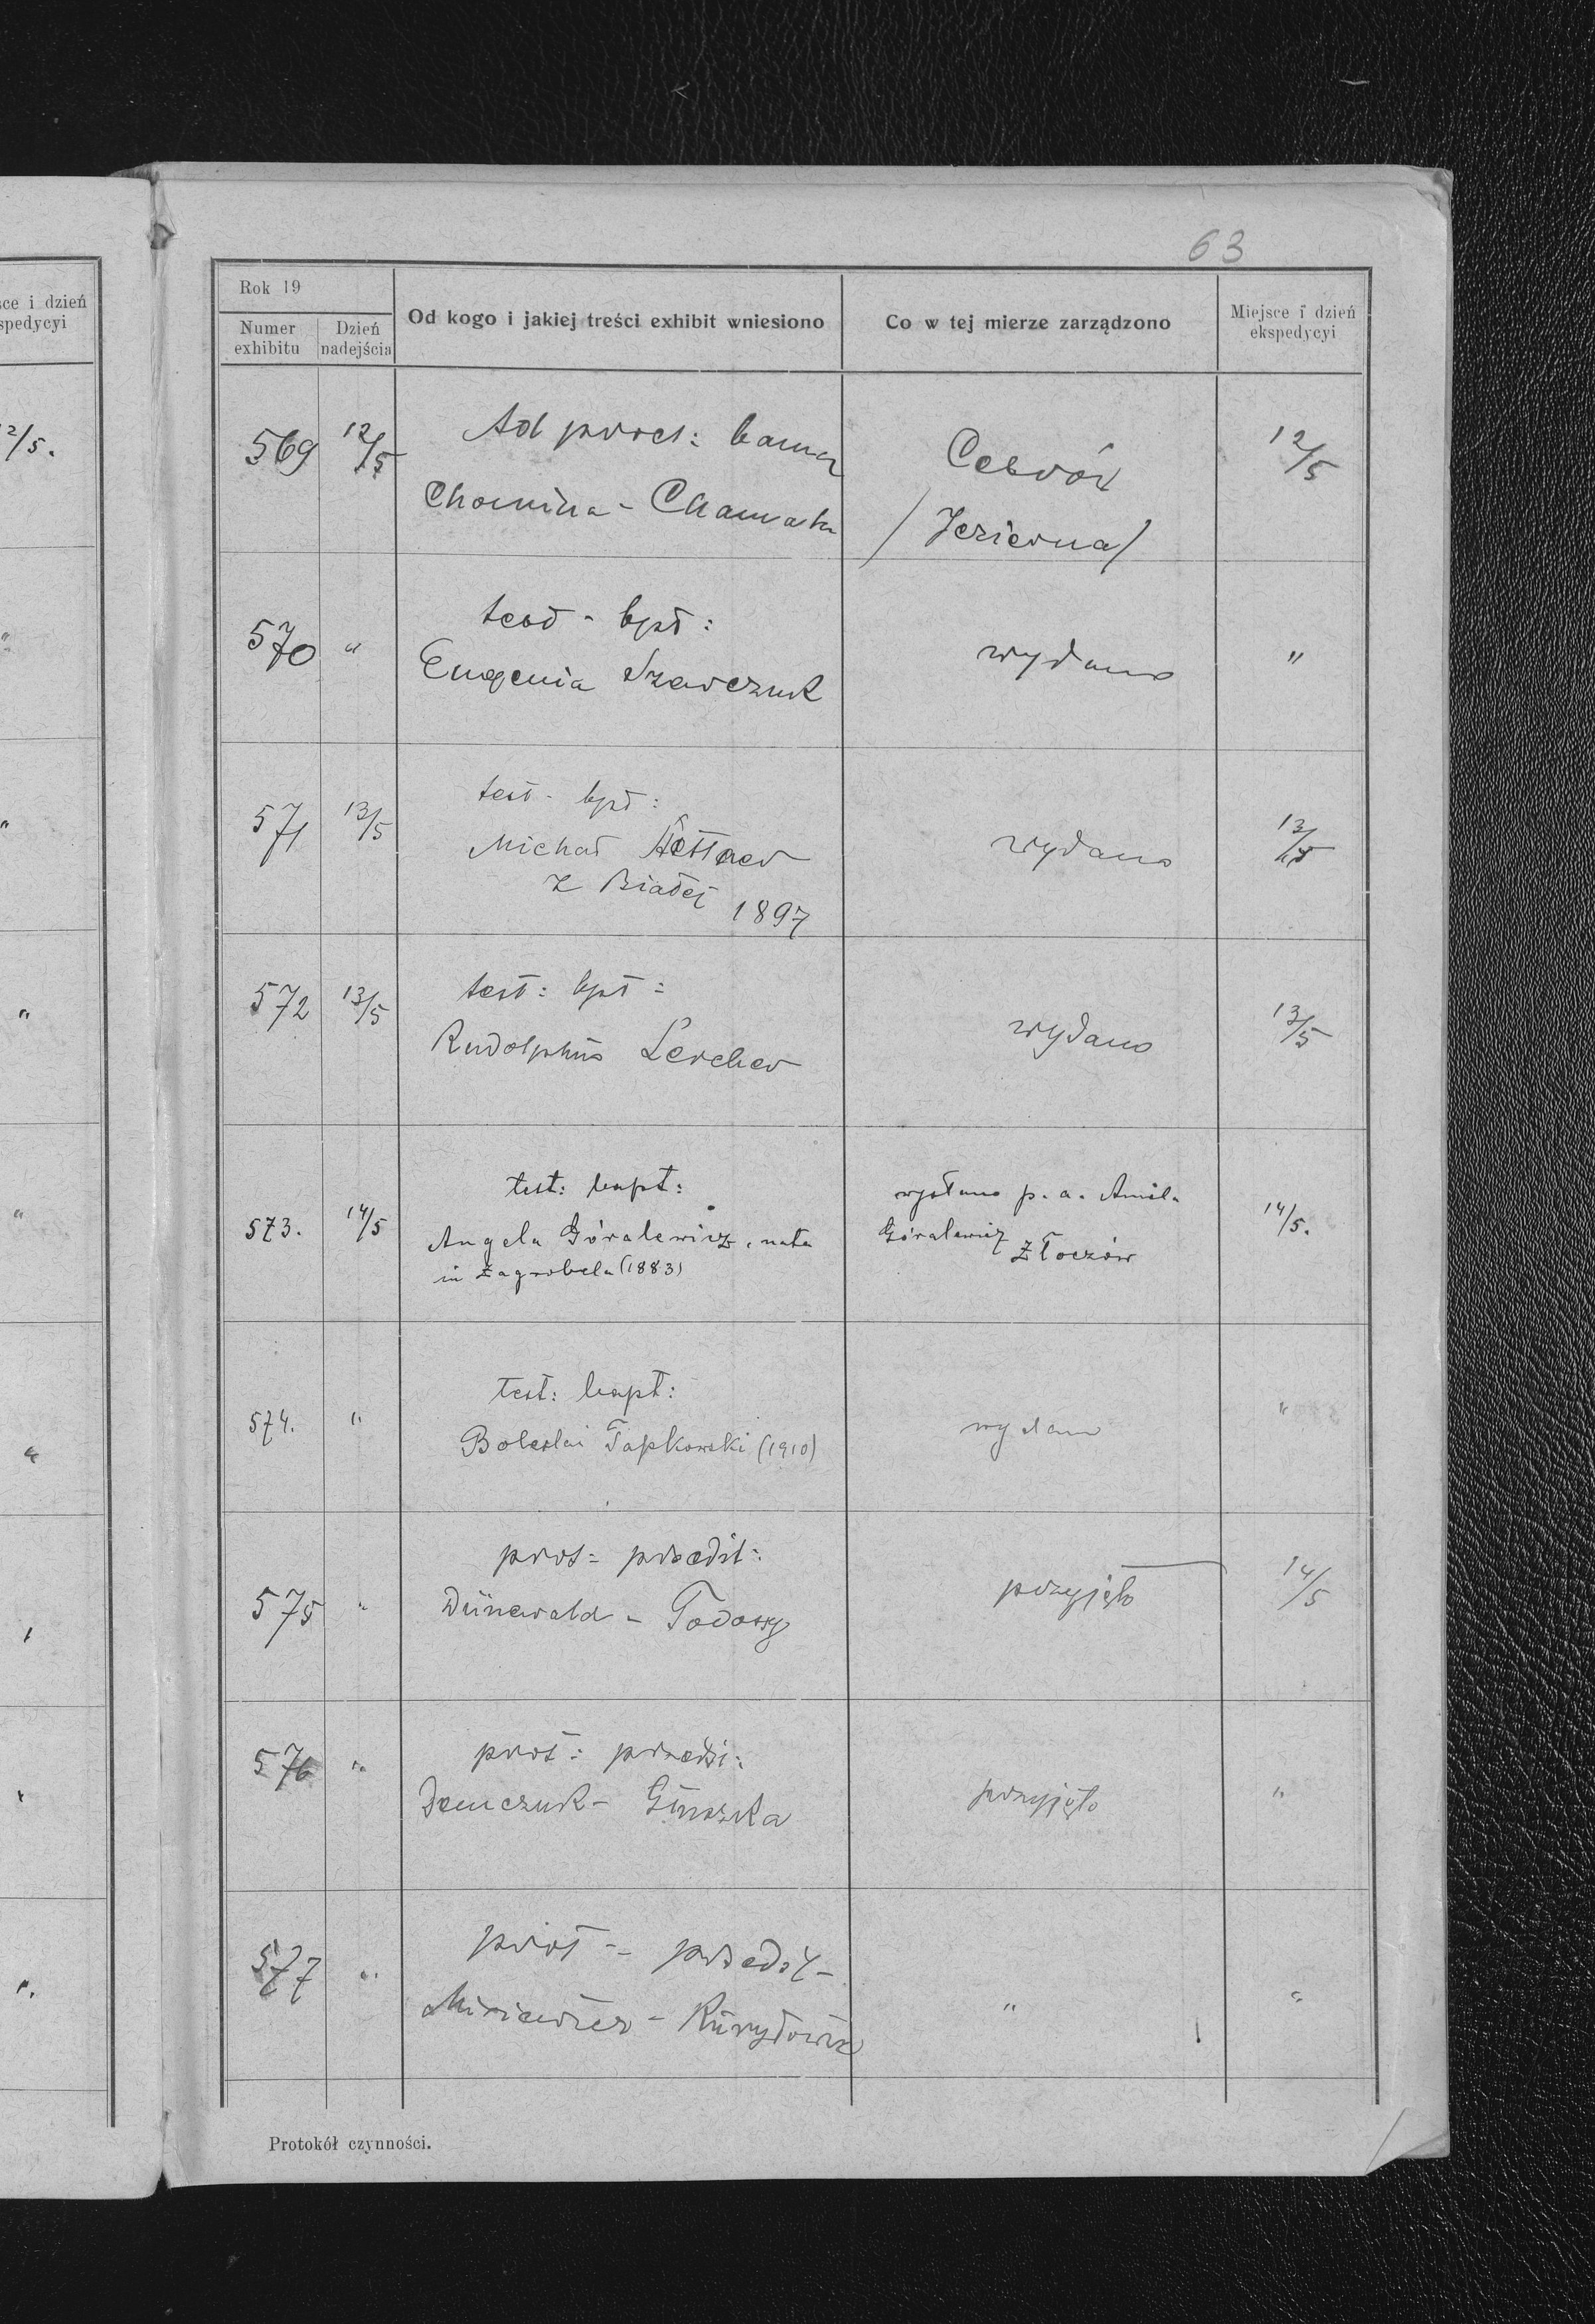 sce i dzień
spedycyi
12/5.
63
Rok 19
Numer exhibitu
Dzień nadejścia
Od kogo i jakiej treści exhibit wniesiono
Co w tej mierze zarządzono
Miejsce i dzień ekspedycyi
569 12/5
Ad procl: banna
Chomina - Chamaka
Cebrów
/Jezierna/
12/5
570 "
test - bpt:
Eugenia Szewczuk
wydano
"
571 13/5
test - bpt:
Michał
z Białej
1897
wydano
13/5
572 13/5
test: bpt:
Rudolphus Lercher
wydano
13/5
573. 14/5
test: bapt:
Angela Góralewicz, nata
in Zagrobela (1883)
wysłano p. a. Amil.
Góralewicz
Złoczów
14/5.
574. "
test: bapt:
Boleslai Tapkowski (1910)
wydano
"
575 "
prot: przedśl:
Dünewald - Todorxy
przyjęto
14/5
576 "
prot: przedśl:
Demczuk - Gruszka
przyjęto
"
577 "
prot - przedśl -
"
"
Protokół czynności.